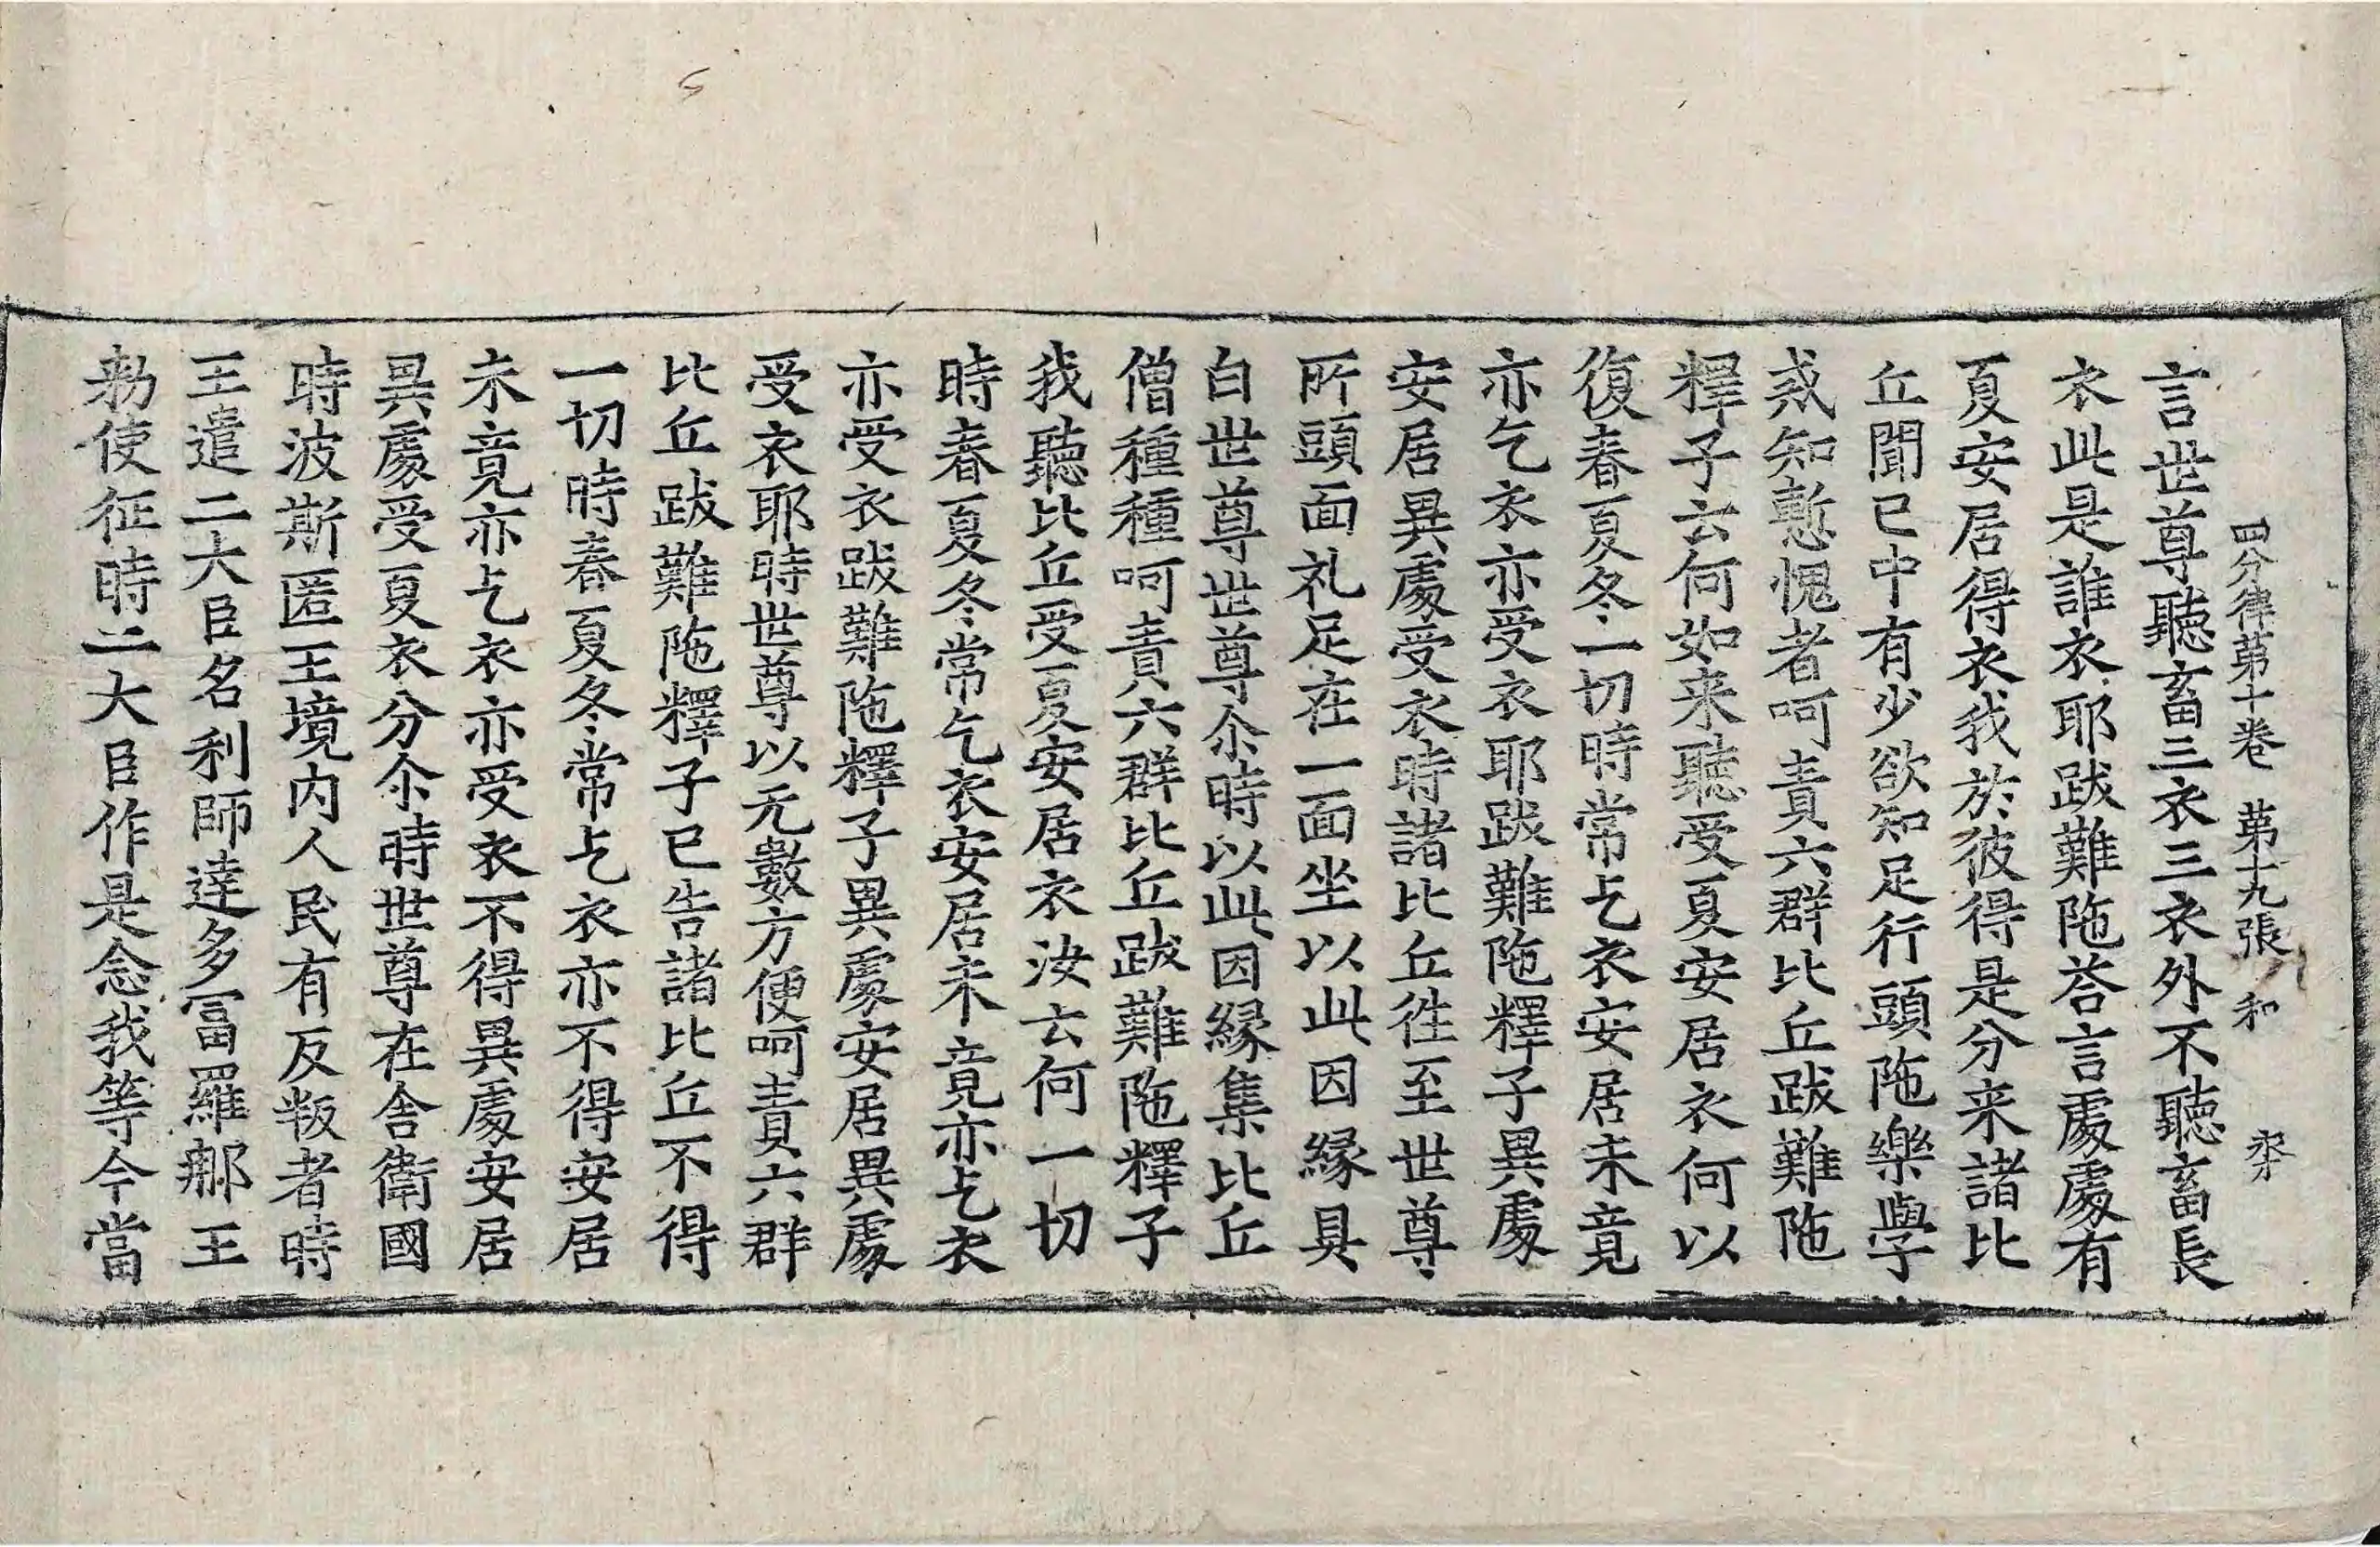 四分律苐十卷　苐十九張　和
言世尊聽畜三衣三衣外不聽畜長
衣此是誰衣耶跋難陁荅言處處有
夏安居得衣我於彼得是分来諸比
丘聞已中有少欲知足行頭陁樂學
戒知慙愧者呵責六群比丘跋難陁
釋子云何如来聽受夏安居衣何以
復春夏冬一切時常乞衣安居未竟
亦乞衣亦受衣耶跋難陁釋子異處
安居異處受衣時諸比丘徃至世尊
所頭面礼足在一面坐以此因縁具
白世尊世尊尒時以此因縁集比丘
僧種種呵責六群比丘跋難陁釋子
我聽比丘受夏安居衣汝云何一切
時春夏冬常乞衣安居未竟亦乞衣
亦受衣跋難陁釋子異處安居異處
受衣耶時世尊以无數方便呵責六群
比丘跋難陁釋子已告諸比丘不得
一切時春夏冬常乞衣亦不得安居
未竟亦乞衣亦受衣不得異處安居
異處受夏衣分尒時世尊在舎衛國
時波斯匿王境内人民有反叛者時
王遣二大臣名利師達多冨羅那王
勑使征時二大臣作是念我等今當